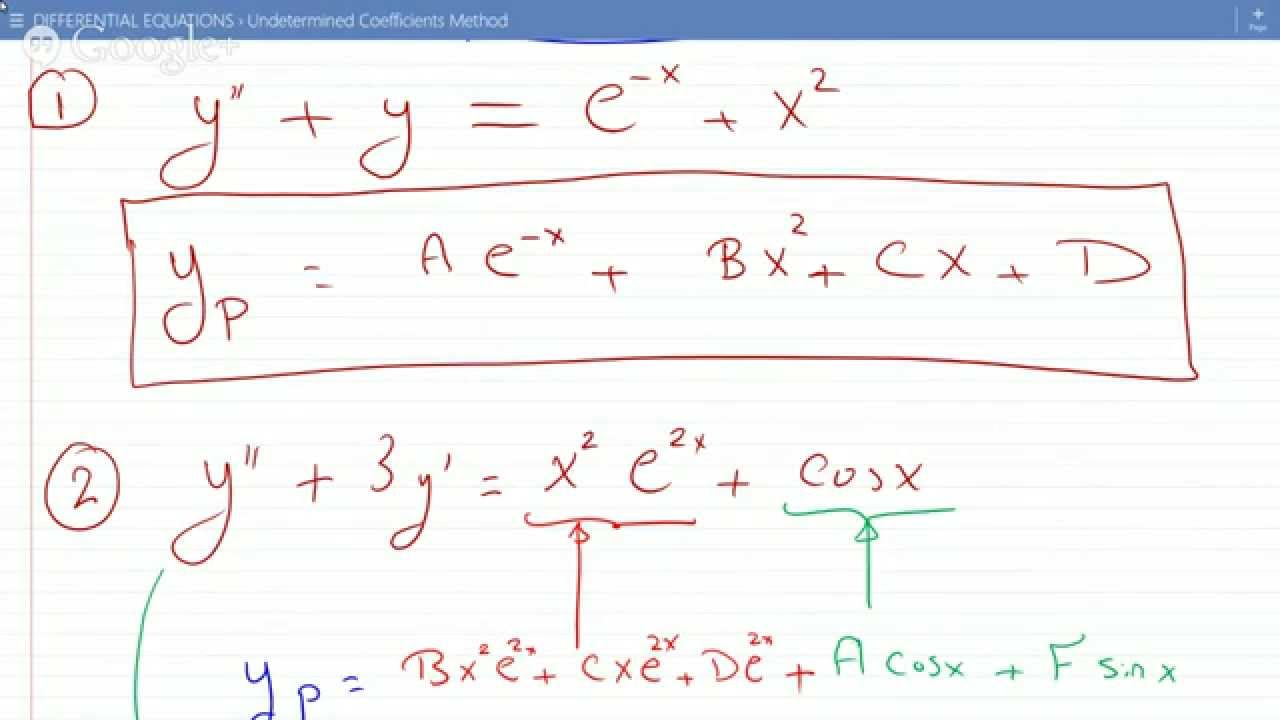 ☰ DIFFERENTIAL EQUATIONS › Undetermined Coefficients Method
+ Page
Google+
① y'' + y = e⁻ˣ + x²
y_p = A e⁻ˣ + Bx² + Cx + D
② y'' + 3y' = x² e²ˣ + cosx
y_p = Bx²e²ˣ + Cxe²ˣ + De²ˣ + A cosx + F sinx